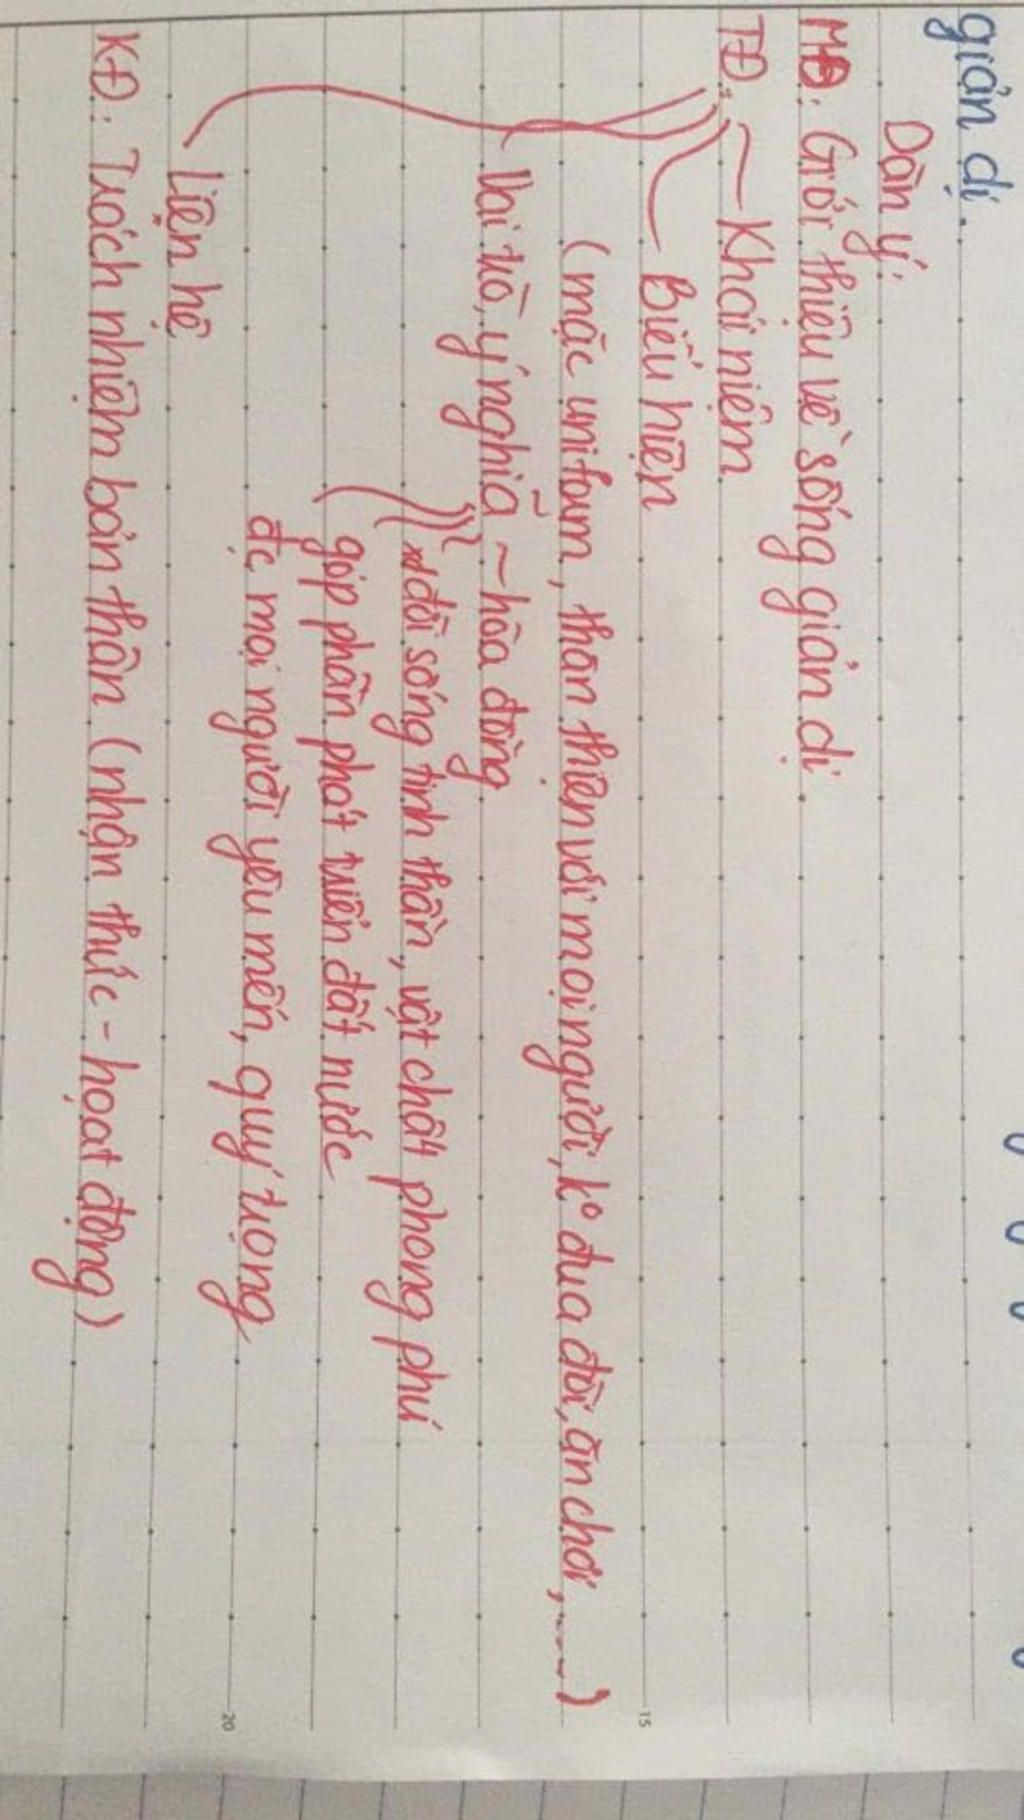 giản dị.
Dàn ý:
MĐ: Giới thiệu về sống giản dị
TĐ: - Khái niệm
Biểu hiện
(mặc uniform, thân thiện với mọi người, kº đua đòi, ăn chơi, ....)
Vai trò, ý nghĩa - hòa đồng
đời sống tinh thần, vật chất phong phú
góp phần phát triển đất nước
đc mọi người yêu mến, quý trọng
Liên hệ
KĐ: Trách nhiệm bản thân (nhận thức - hoạt động)
15
20